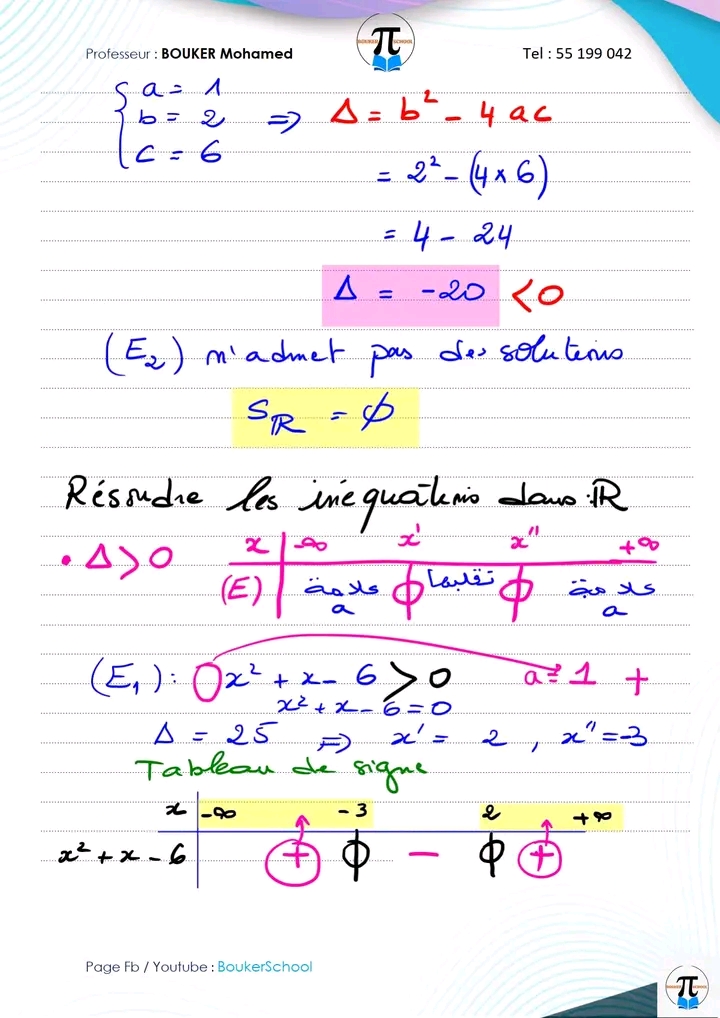 Professeur : BOUKER Mohamed
BOUKER π SCHOOL
Tel : 55 199 042
a = 1
b = 2 => Δ = b² - 4 ac
c = 6
= 2² - (4 × 6)
= 4 - 24
Δ = -20 < 0
(E₂) n'admet pas des solutions
S_ℝ = ϕ
Résoudre les inéquations dans ℝ
• Δ > 0
x | -∞ x' x'' +∞
(E) | علامة a ϕ تقلبها ϕ علامة a
(E₁) : x² + x - 6 > 0 a = 1 +
x² + x - 6 = 0
Δ = 25 => x' = 2 , x'' = -3
Tableau de signe
x | -∞ -3 2 +∞
x² + x - 6 | + ϕ - ϕ +
Page Fb / Youtube : BoukerSchool
BOUKER π SCHOOL